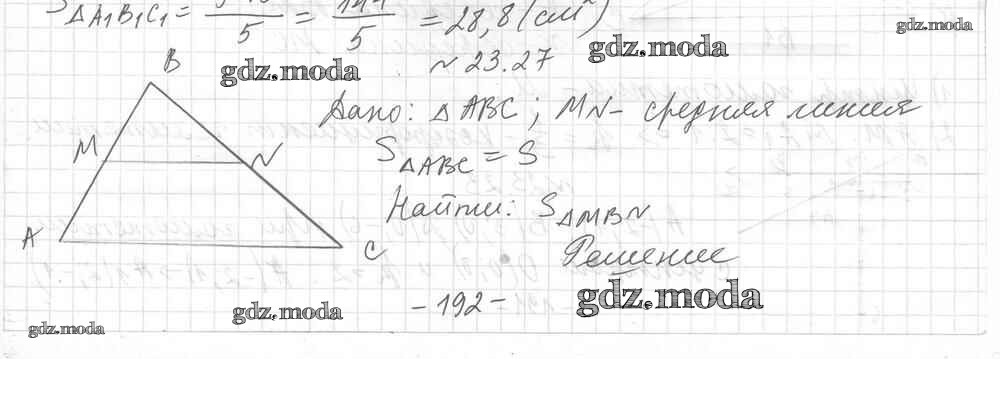 S△A₁B₁C₁ = /5 = 144/5 = 28,8 (см²)
gdz.moda
gdz.moda
gdz.moda
№ 23.27
B
Дано: △ABC; MN - средняя линия
M
N
S△ABC = S
Найти: S△MBN
A
C
Решение
- 192 -
gdz.moda
gdz.moda
gdz.moda